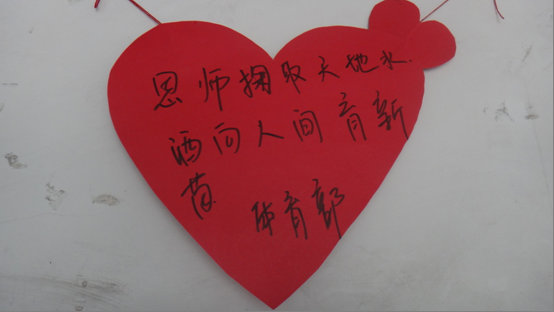 恩师掬取天地水
洒向人间育新
苗
体育部